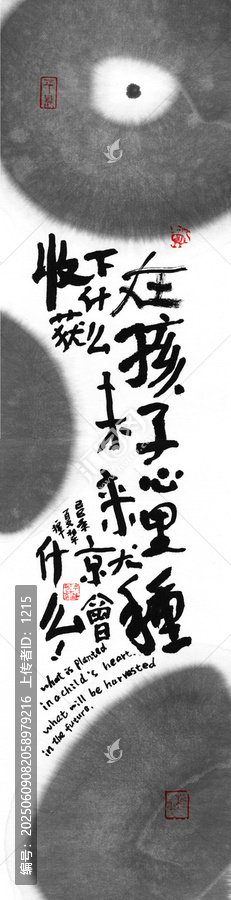 在孩子心里種
下什么未来就會
收获什么!
what is planted
in a child's heart.
what will be harvested
in the future.
编号：20250609082058979216 上传者ID：1215